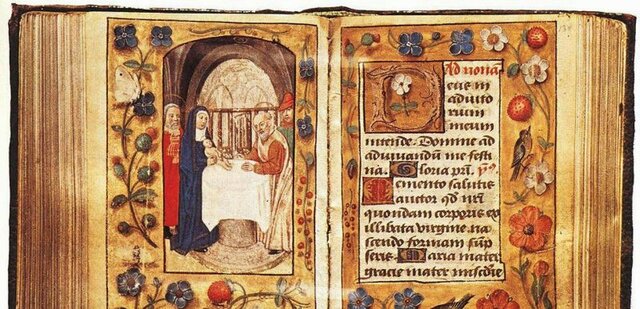 Ad nona
eus in
adiuto
rium
meum
intende. Domine ad
adiuuandũ me festi
na. Gloria pr̃i. ps̃.
Memento salutis
auctor qd̃ nr̃i
quondam corporis ex
illibata virgine, na
scendo formam sũp
seris. Maria mater
gracie mater miscdie